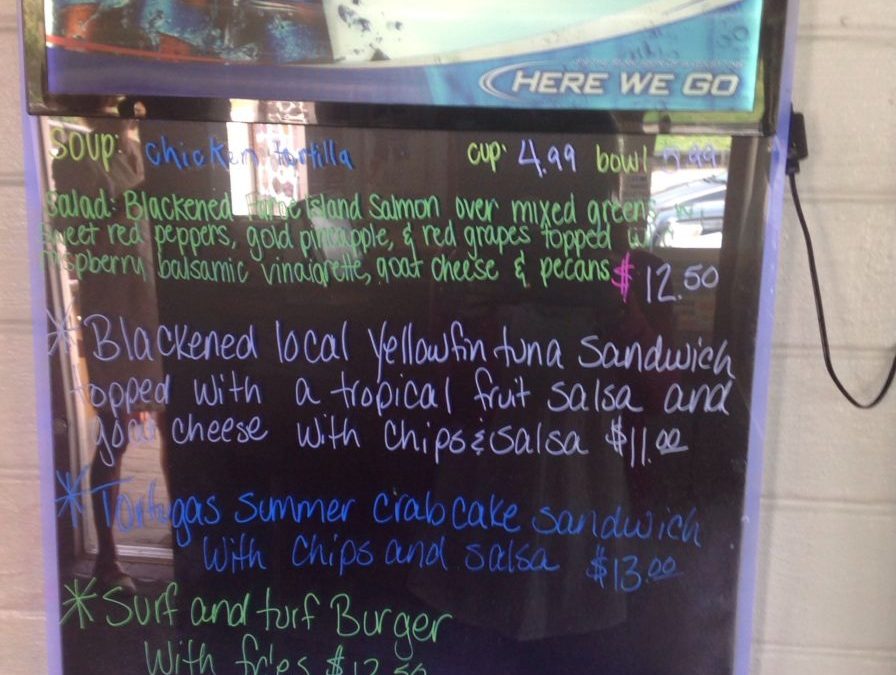 HERE WE GO
SOUP: chicken tortilla cup: 4.99 bowl
Salad: Blackened Island Salmon over mixed greens
sweet red peppers, gold pineapple, & red grapes topped
raspberry balsamic vinaigrette, goat cheese & pecans $12.50
* Blackened local yellowfin tuna sandwich
topped with a tropical fruit salsa and
goat cheese with chips & salsa $11.00
* Tortugas summer crab cake sandwich
with chips and salsa $13.00
* Surf and turf Burger
with fries $12.50